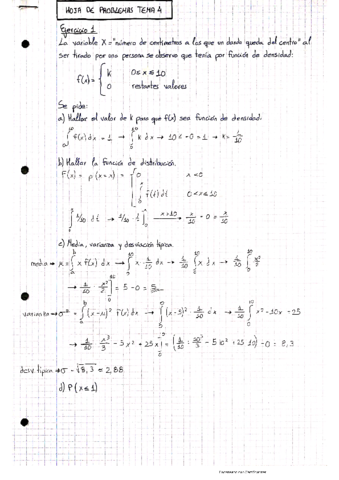 HOJA DE PROBLEMAS TEMA 4
Ejercicio 1
La variable X = "número de centímetros a los que un dardo queda del centro" al
ser tirado por una persona se observo que tenía por función de densidad:
f(x) = { k 0≤x≤10
0 restantes valores
Se pide:
a) Hallar el valor de k para que f(x) sea función de densidad:
∫ f(x) dx = 1 → ∫ k dx → 10k - 0 = 1 → k = 1/10
b) Hallar la función de distribución.
F(x) = p(x≤x) = { 0 x<0
∫ f(t) dt 0<x≤10
∫ 1/10 dt → 1/10 · t → x/10 - 0 = x/10
c) Media, varianza y desviación típica.
media → μ = ∫ x f(x) dx → ∫ x · 1/10 dx → 1/10 ∫ x dx → 1/10 x²/2
→ 1/10 · x²/2 = 5 - 0 = 5
varianza → σ² = ∫ (x-μ)² f(x) dx → ∫ (x-5)² · 1/10 dx → 1/10 ∫ x² - 10x - 25
→ 1/10 · x³/3 - 5x² + 25x = (1/10 · 10³/3 - 5·10² + 25·10) - 0 = 8,3
desv típica → σ = √8,3 = 2,88
d) P(x≤1)